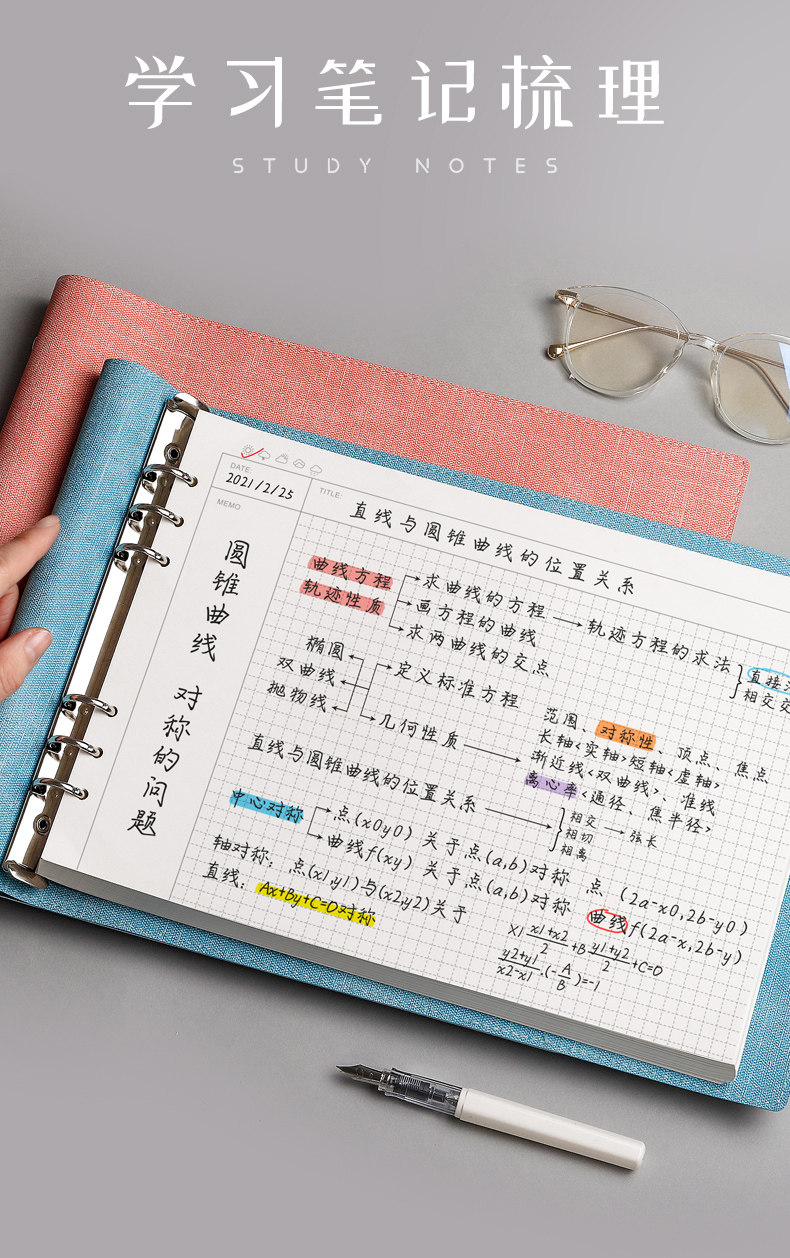 学习笔记梳理
STUDY NOTES
DATE:
2021/2/25
TITLE:
直线与圆锥曲线的位置关系
MEMO
圆锥曲线 对称的问题
曲线方程
轨迹性质
求曲线的方程
画方程的曲线
求两曲线的交点
轨迹方程的求法
直接
相交
椭圆
双曲线
抛物线
定义标准方程
几何性质
范围、对称性、顶点、焦点
长轴<实轴>短轴<虚轴>
渐近线<双曲线>、准线
离心率<通径、焦半径>
直线与圆锥曲线的位置关系
相交
相切
相离
弦长
中心对称
点(x0y0) 关于点(a,b)对称 点 (2a-x0,2b-y0)
曲线f(xy) 关于点(a,b)对称 曲线f(2a-x,2b-y)
轴对称：点(x1,y1)与(x2,y2)关于
直线：Ax+By+C=0对称
X1 x1+x2/2 +B y1+y2/2 +C=0
y2+y1/x2-x1 .(-A/B)=-1